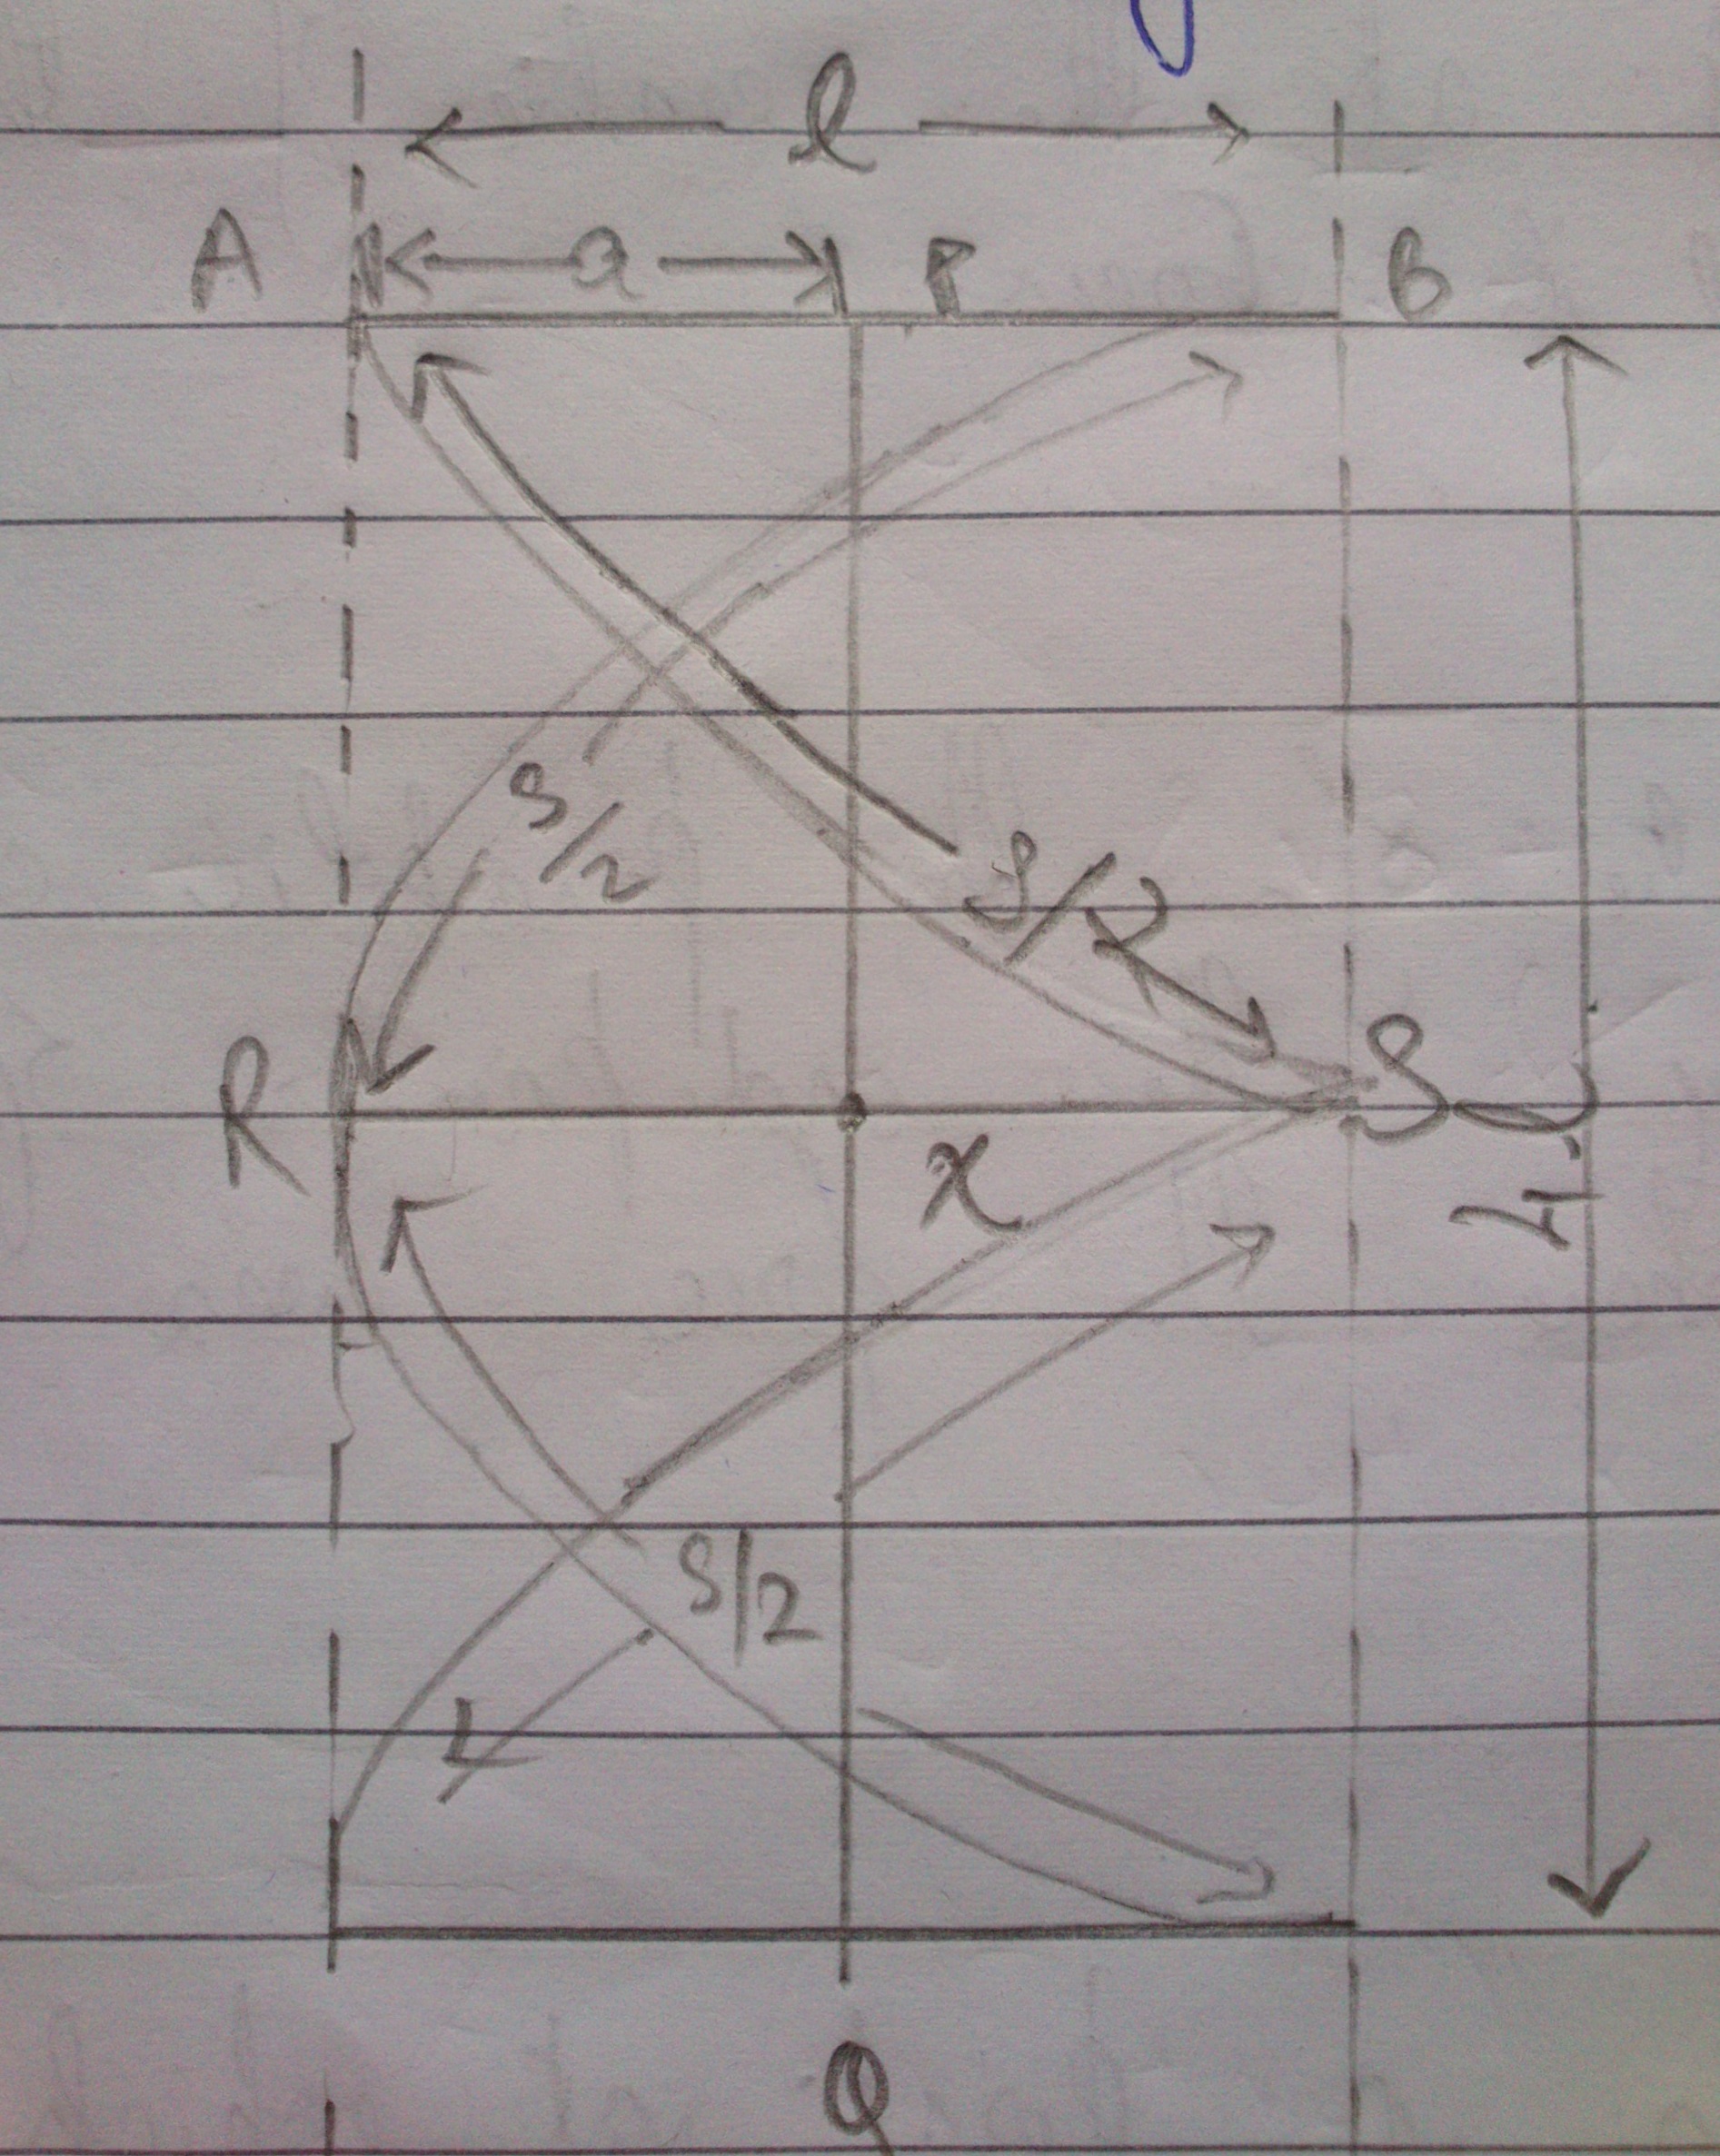 l
A a P B
S/2
S/2
R S
x
4l
S/2
Q